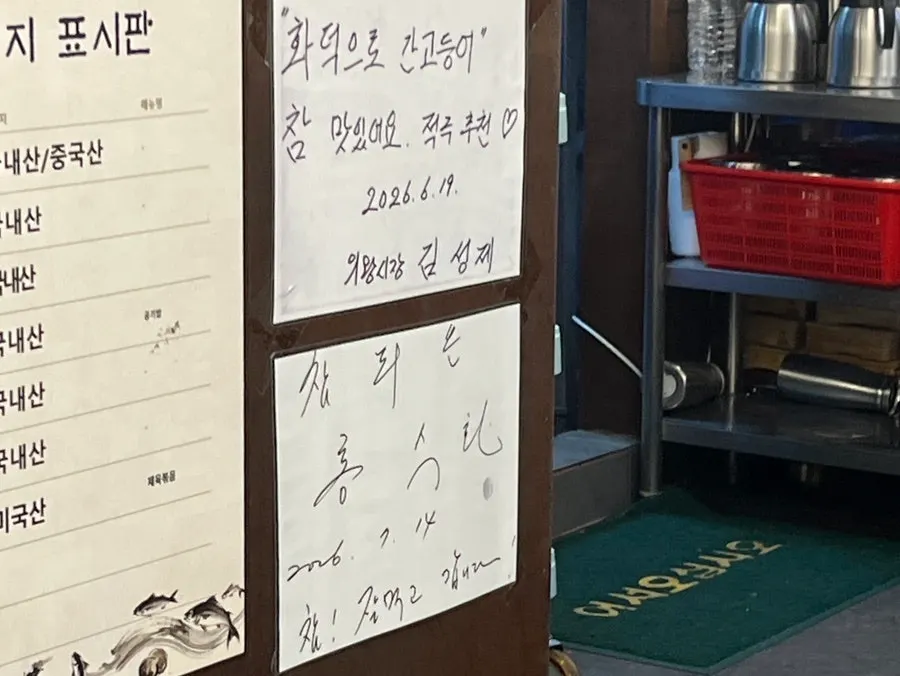 지 표시판
메뉴명
내산/중국산
내산
국내산
국내산
공기밥
국내산
국내산
제육볶음
미국산
"화덕으로 간고등어"
참 맛있어요. 적극 추천 ♡
2026.6.19.
의왕시장 김성제
2026. 7. 14
참! 잘먹고 갑니다!
어서오십시오